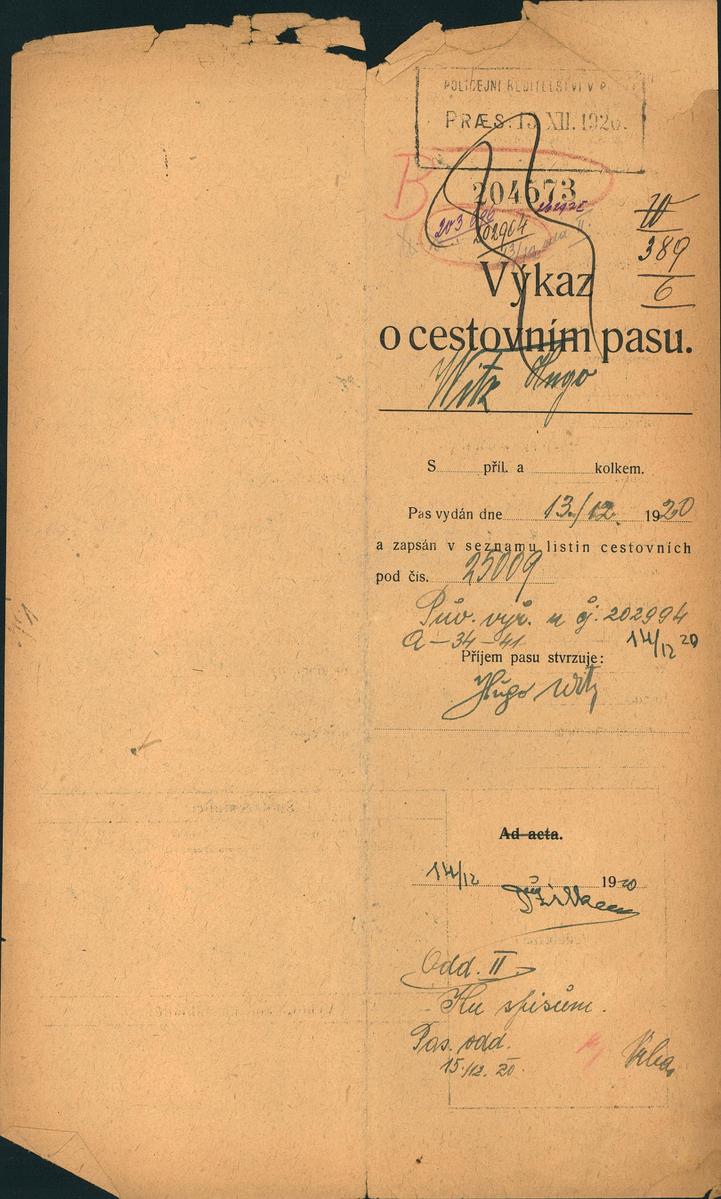 POLICEJNÍ ŘEDITELSTVÍ V P
PRÆS. 13 XII. 1920.
B
204573
203
202904
13/12
W
389
6
Výkaz
o cestovním pasu.
Witz Hugo
S příl. a kolkem.
Pas vydán dne 13./12. 1920
a zapsán v seznamu listin cestovních
pod čís. 25009
Pův. vyř. u čj. 202994
a-34-41 14/12 20
Příjem pasu stvrzuje:
Hugo Witz
Ad acta.
14/12 1920
Odd. II
Ku spisům.
Pas. odd.
15./12. 20.